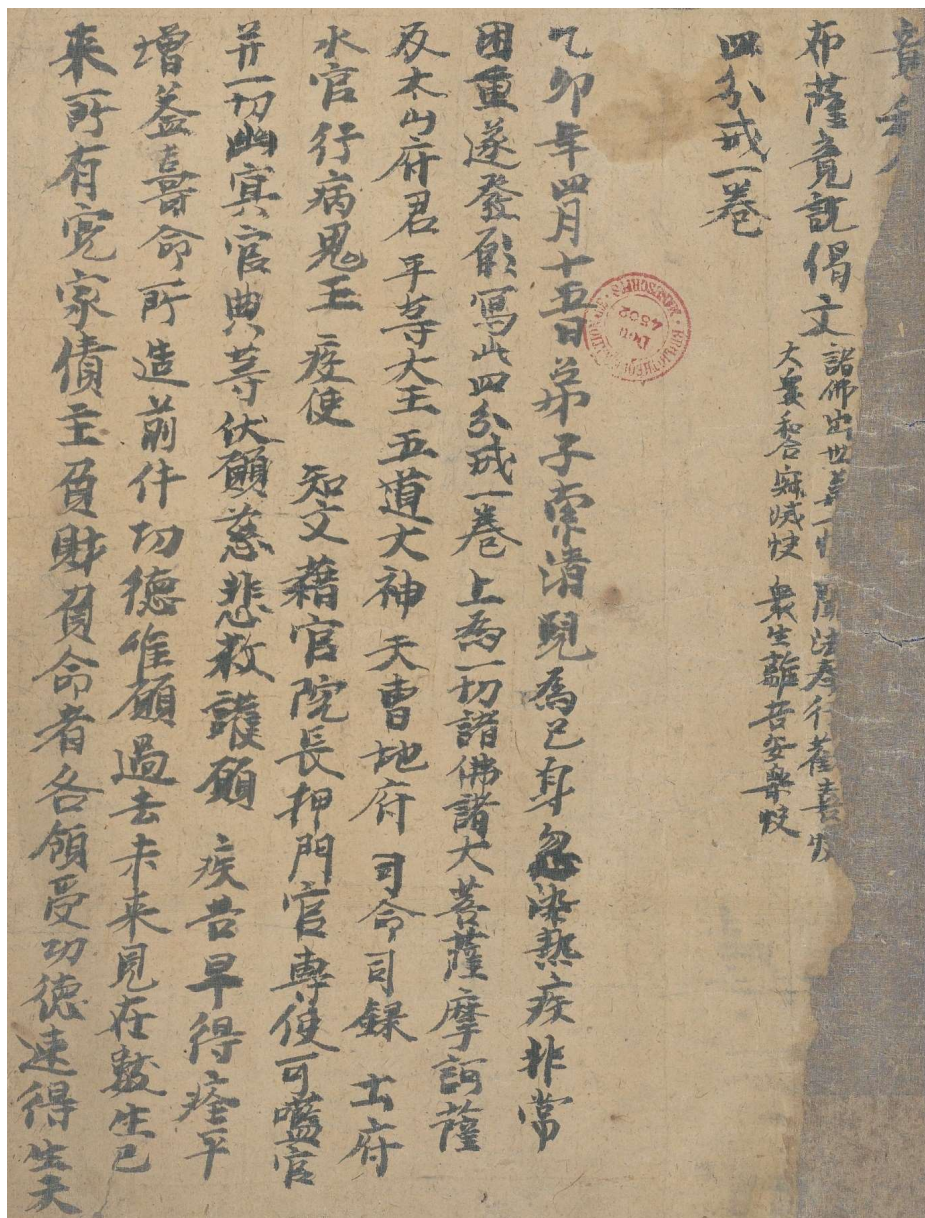 布薩竟說偈文
諸佛出世第一快 聞法奉行
大衆和合寂滅快 衆生離苦安樂快
四分戒一卷
乙卯年四月十五日弟子索清兒為己身忽染熱疾非常
困重遂發願寫此四分戒一卷上為一切諸佛諸大菩薩摩訶薩
及太山府君平等大王五道大神天曹地府司命司錄土府
水官行病鬼王疫使知文藉官院長押門官專使可嚂官
并一切幽冥官典等伏願慈悲救護願疾苦早得痊平
增益壽命所造前件功德唯願過去未來見在數生已
来所有冤家債主負財負命者各領受功德速得生天